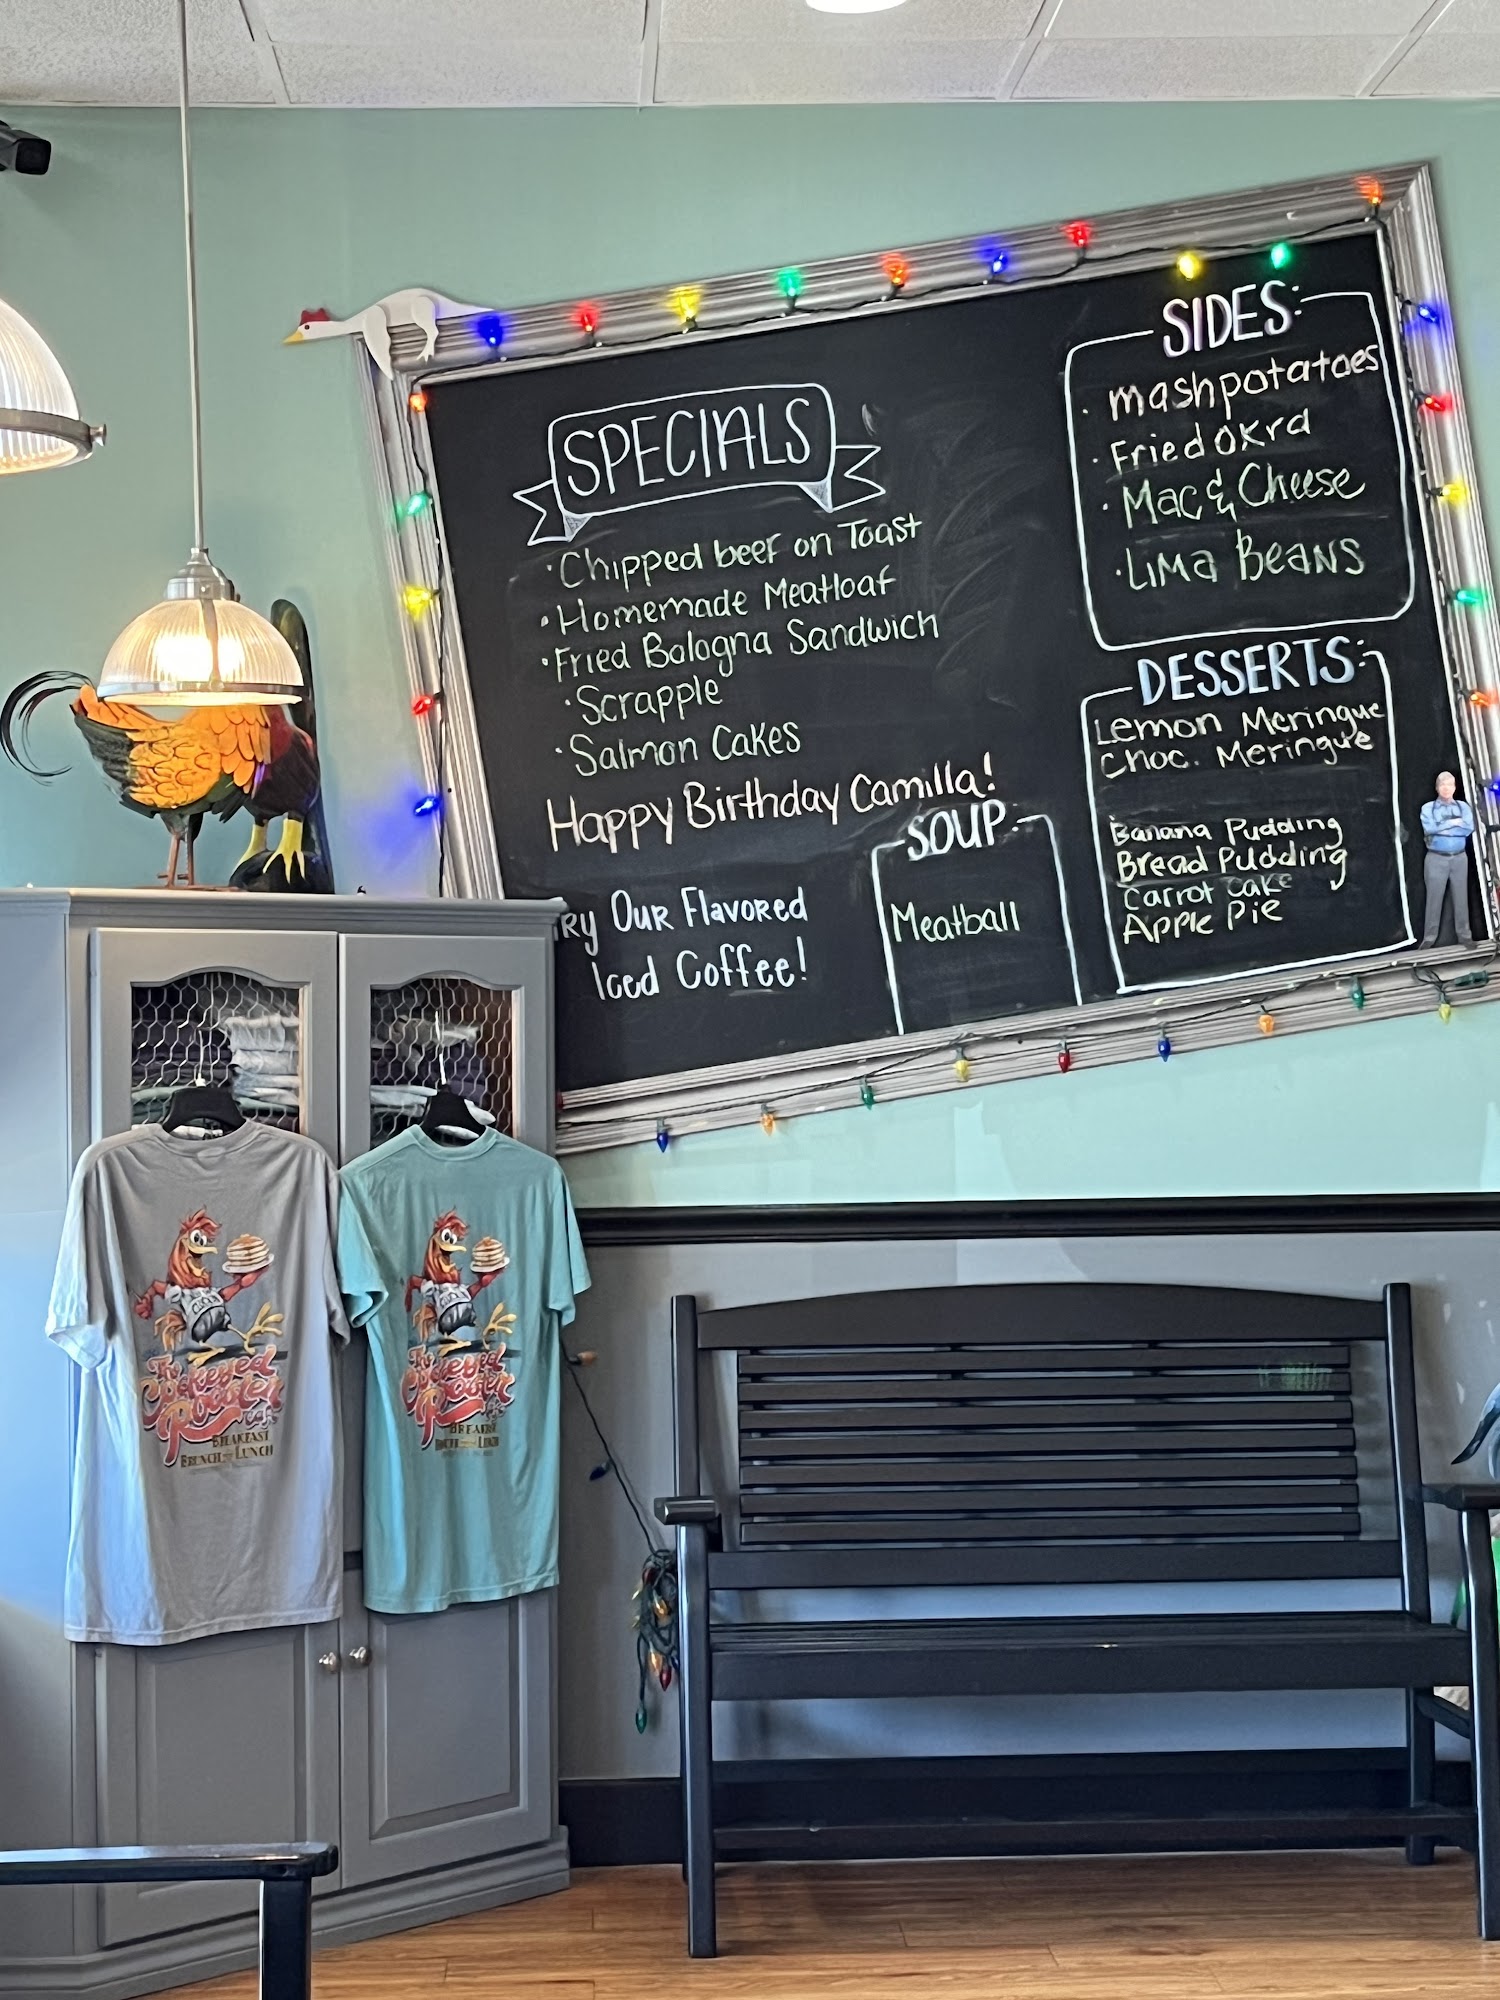 SPECIALS
· Chipped beef on Toast
· Homemade Meatloaf
· Fried Bologna Sandwich
· Scrapple
· Salmon Cakes
Happy Birthday Camilla!
ry Our Flavored
Iced Coffee!
SOUP
Meatball
SIDES:
· mashpotatoes
· Fried okra
· Mac & Cheese
· Lima Beans
DESSERTS:
Lemon Meringue
Choc. Meringue
Banana Pudding
Bread Pudding
Carrot cake
Apple Pie
The
Cockeyed
Rooster
Cafe
Breakfast
Brunch Lunch
The
Cockeyed
Rooster
Cafe
Breakfast
Brunch Lunch